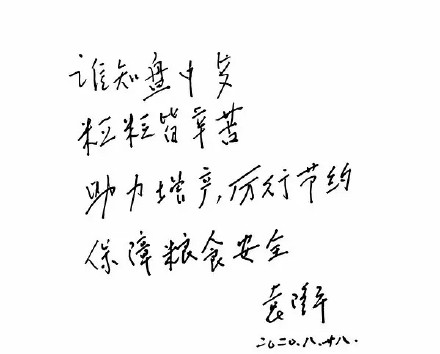 谁知盘中歺
粒粒皆辛苦
助力增产,厉行节约
保障粮食安全
袁隆平
2020.八.廿八.